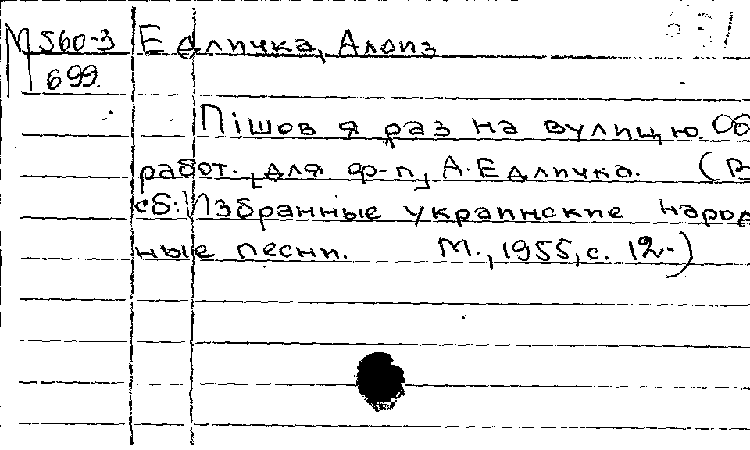 М 560-3 Едличка, Алоиз
699.
Пішов я раз на вулицю. Об
работ. [для ф-п] А. Едличка. (В
сб: Избранные украинские народ
ные песни. М., 1955, с. 12.)